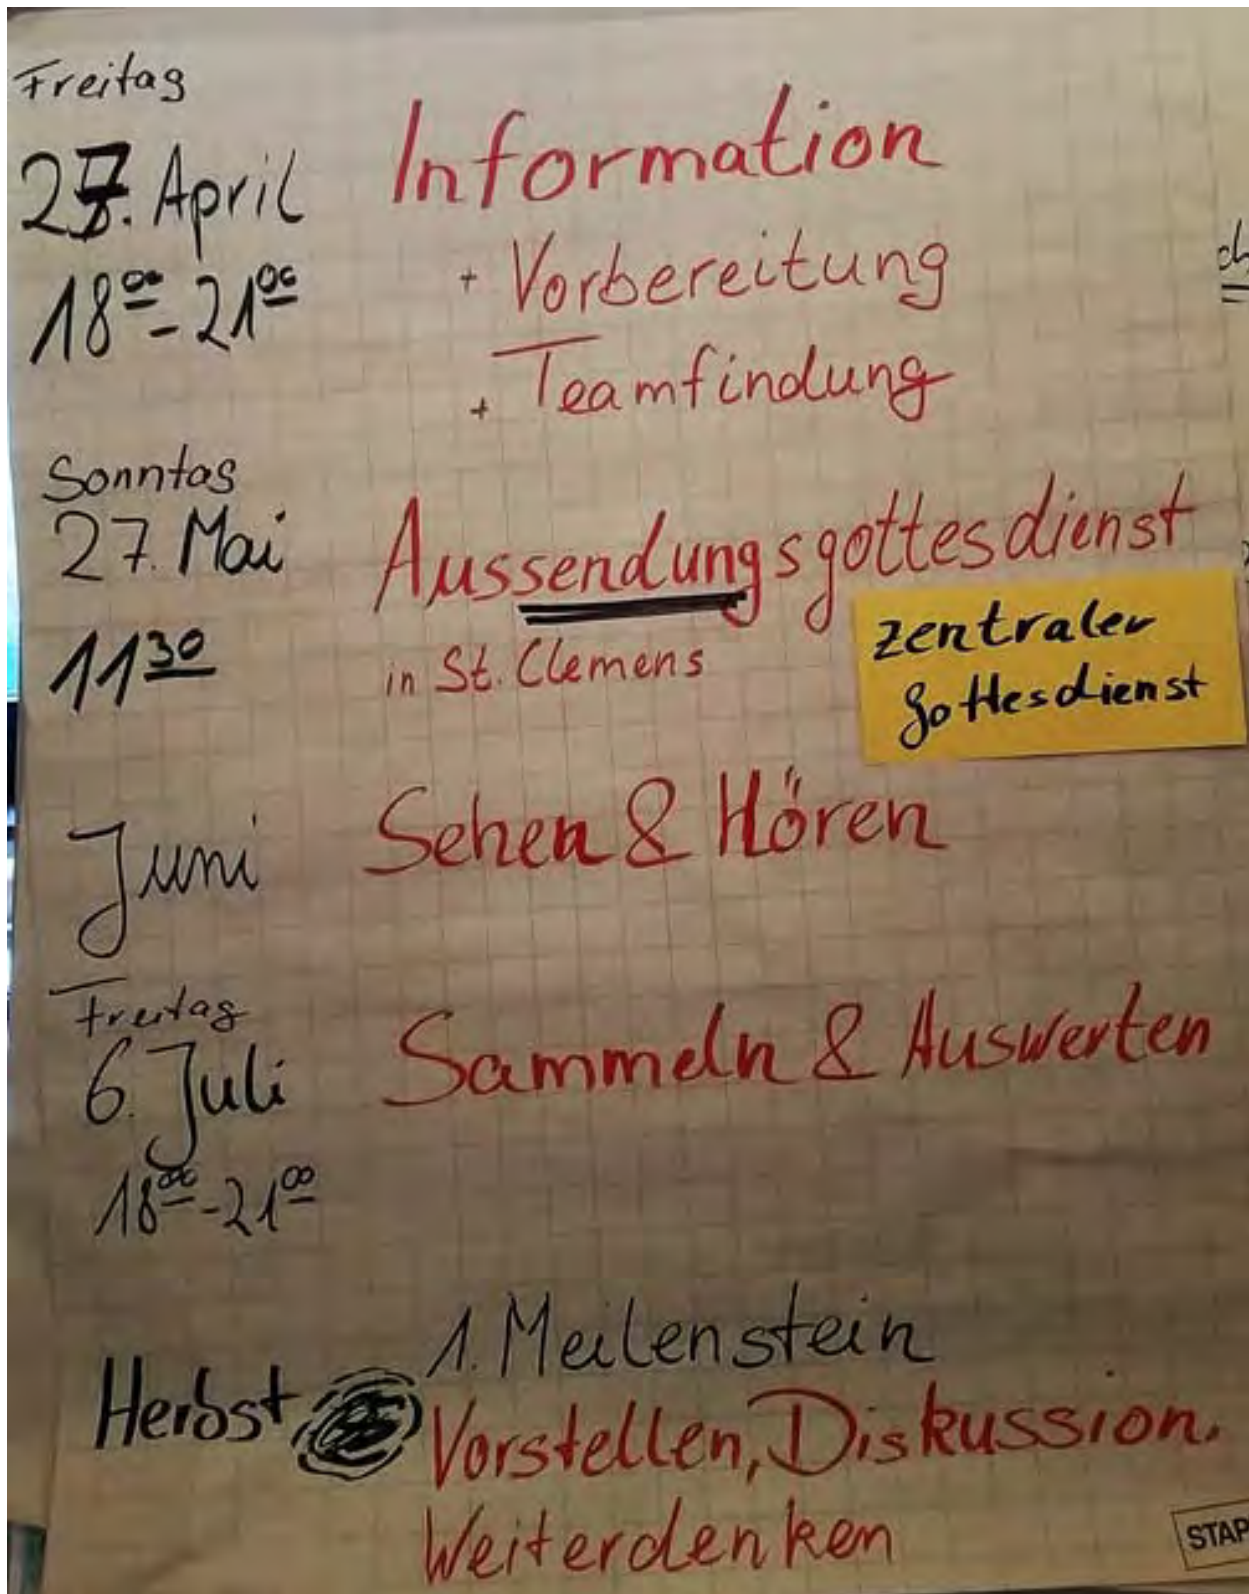 Freitag
27. April
18⁰⁰ - 21⁰⁰
Information
+ Vorbereitung
+ Teamfindung
Sonntag
27. Mai
11³⁰
Aussendungsgottesdienst
in St. Clemens
zentraler
Gottesdienst
Juni
Sehen & Hören
Freitag
6. Juli
18⁰⁰ - 21⁰⁰
Sammeln & Auswerten
Herbst
1. Meilenstein
Vorstellen, Diskussion,
Weiterdenken
STAP